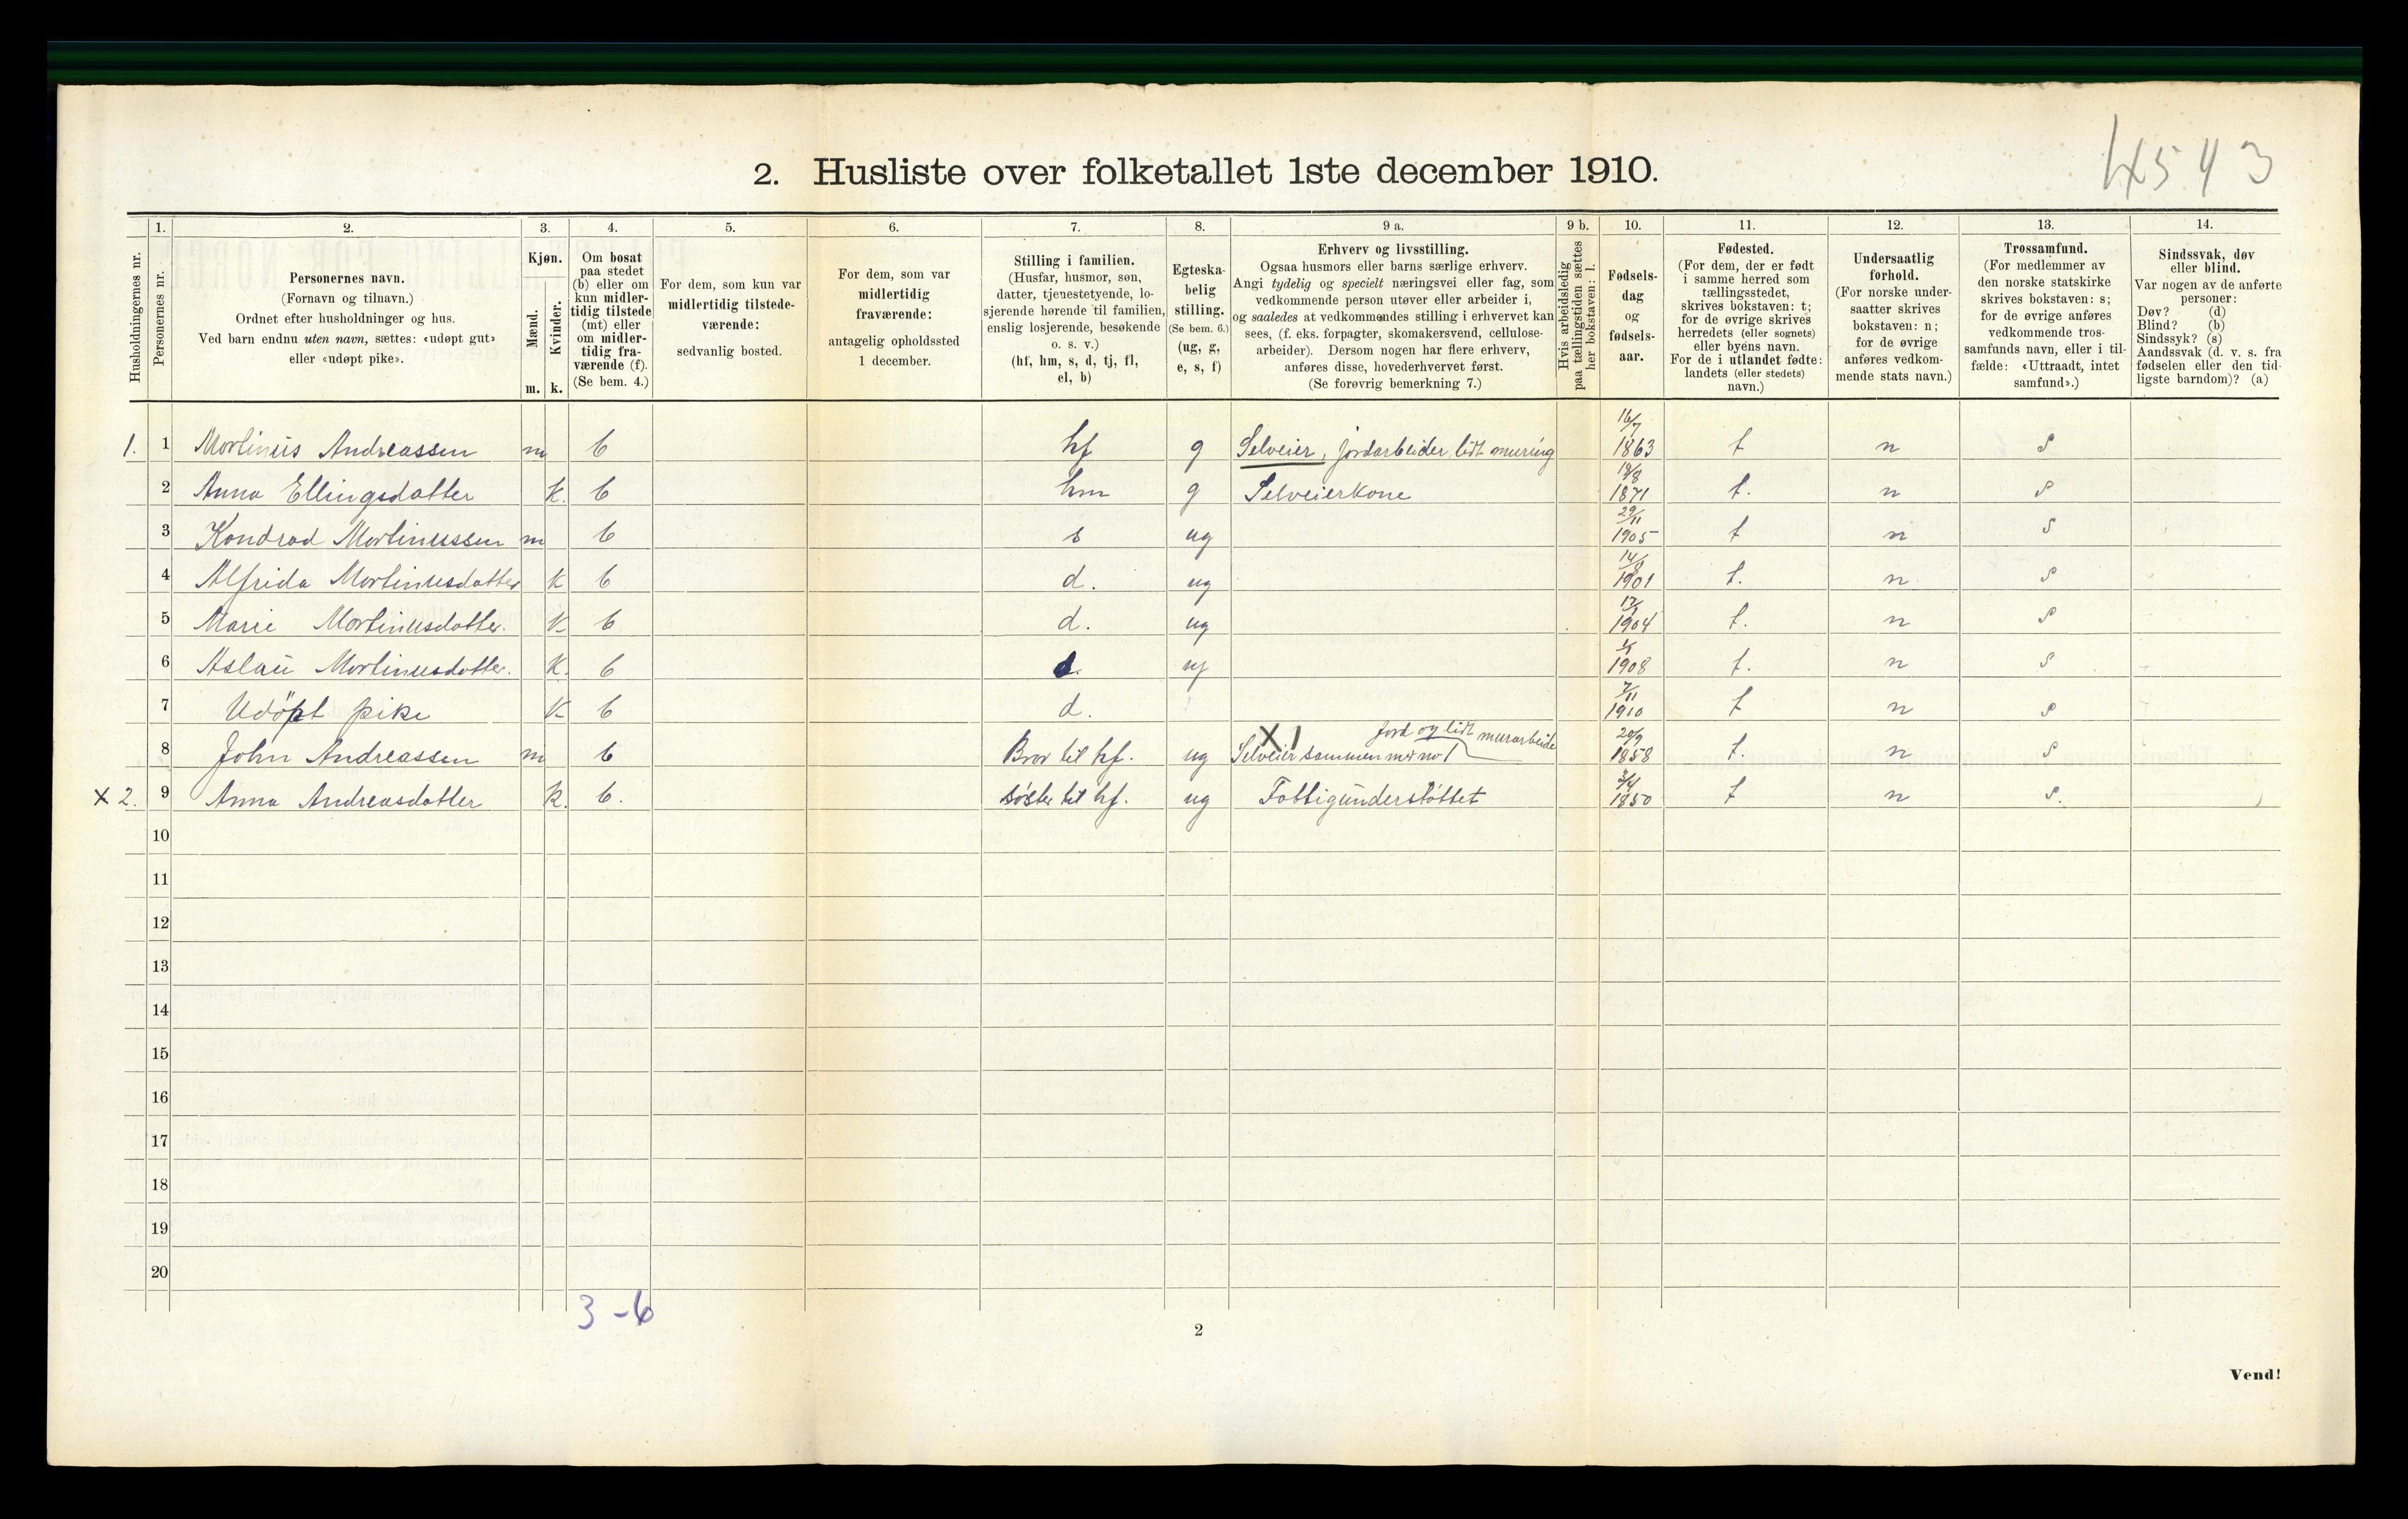 4543
2. Husliste over folketallet 1ste december 1910.
Husholdningernes nr.
1. Personernes nr.
2. Personernes navn. (Fornavn og tilnavn.) Ordnet efter husholdninger og hus. Ved barn endnu uten navn, sættes: «udøpt gut» eller «udøpt pike».
3. Kjøn. Mænd. m. Kvinder. k.
4. Om bosat paa stedet (b) eller om kun midlertidig tilstede (mt) eller om midlertidig fraværende (f). (Se bem. 4.)
5. For dem, som kun var midlertidig tilstedeværende: sedvanlig bosted.
6. For dem, som var midlertidig fraværende: antagelig opholdssted 1 december.
7. Stilling i familien. (Husfar, husmor, søn, datter, tjenestetyende, losjerende hørende til familien, enslig losjerende, besøkende o. s. v.) (hf, hm, s, d, tj, fl, el, b)
8. Egteskabelig stilling. (Se bem. 6.) (ug, g, e, s, f)
9 a. Erhverv og livsstilling. Ogsaa husmors eller barns særlige erhverv. Angi tydelig og specielt næringsvei eller fag, som vedkommende person utøver eller arbeider i, og saaledes at vedkommendes stilling i erhvervet kan sees, (f. eks. forpagter, skomakersvend, cellulosearbeider). Dersom nogen har flere erhverv, anføres disse, hovederhvervet først. (Se forøvrig bemerkning 7.)
9 b. Hvis arbeidsledig paa tællingstiden sættes her bokstaven: l.
10. Fødselsdag og fødselsaar.
11. Fødested. (For dem, der er født i samme herred som tællingsstedet, skrives bokstaven: t; for de øvrige skrives herredets (eller sognets) eller byens navn. For de i utlandet fødte: landets (eller stedets) navn.)
12. Undersaatlig forhold. (For norske undersaatter skrives bokstaven: n; for de øvrige anføres vedkommende stats navn.)
13. Trossamfund. (For medlemmer av den norske statskirke skrives bokstaven: s; for de øvrige anføres vedkommende trossamfunds navn, eller i tilfælde: «Uttraadt, intet samfund».)
14. Sindssvak, døv eller blind. Var nogen av de anførte personer: Døv? (d) Blind? (b) Sindssyk? (s) Aandssvak (d. v. s. fra fødselen eller den tidligste barndom)? (a)
1. 1 Mortinus Andreassen m b hf g Selveier, jordarbeider, lidt muring 16/7 1863 t n s
2 Anna Ellingsdatter k. b hm g Selveierkone 18/8 1871 t. n s
3 Kondrad Mortinussen m b s ug 29/11 1905 t n s
4 Alfrida Mortinusdatter k b d. ug 1901 t. n s
5 Marie Mortinusdatter. k b d. ug 1904 t. n s
6 Aslau Mortinusdatter. k. b d. ug 1908 t. n s
7 Udöpt pike k b d. 7/11 1910 t n s
8 John Andreassen m b Bror til hf. ug X 1 Selveier sammen m. no 1 Jord og lidt murarbeide 1858 t. n s
X 2. 9 Anna Andreasdatter k. b. söster til hf. ug Fattigunderstöttet 3/4 1850 t n s.
10
11
12
13
14
15
16
17
18
19
20
3 - 6
2
Vend!